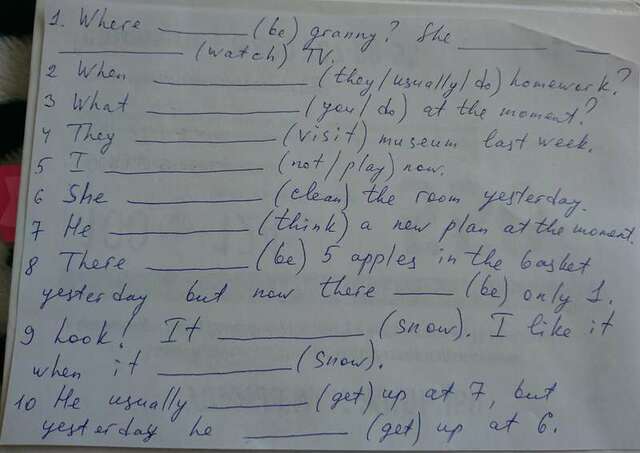 1. Where ________ (be) granny? She ________ __
____________ (watch) TV.
2 When ______________ (they/usually/do) homework?
3 What ____________ (you/do) at the moment?
4 They ____________ (visit) museum last week.
5 I ______________ (not/play) now.
6 She ____________ (clean) the room yesterday.
7 He ____________ (think) a new plan at the moment.
8 There ________ (be) 5 apples in the basket
yesterday but now there ____ (be) only 1.
9 Look! It ____________ (snow). I like it
when it ____________ (snow).
10 He usually ________ (get) up at 7, but
yesterday he ________ (get) up at 6.